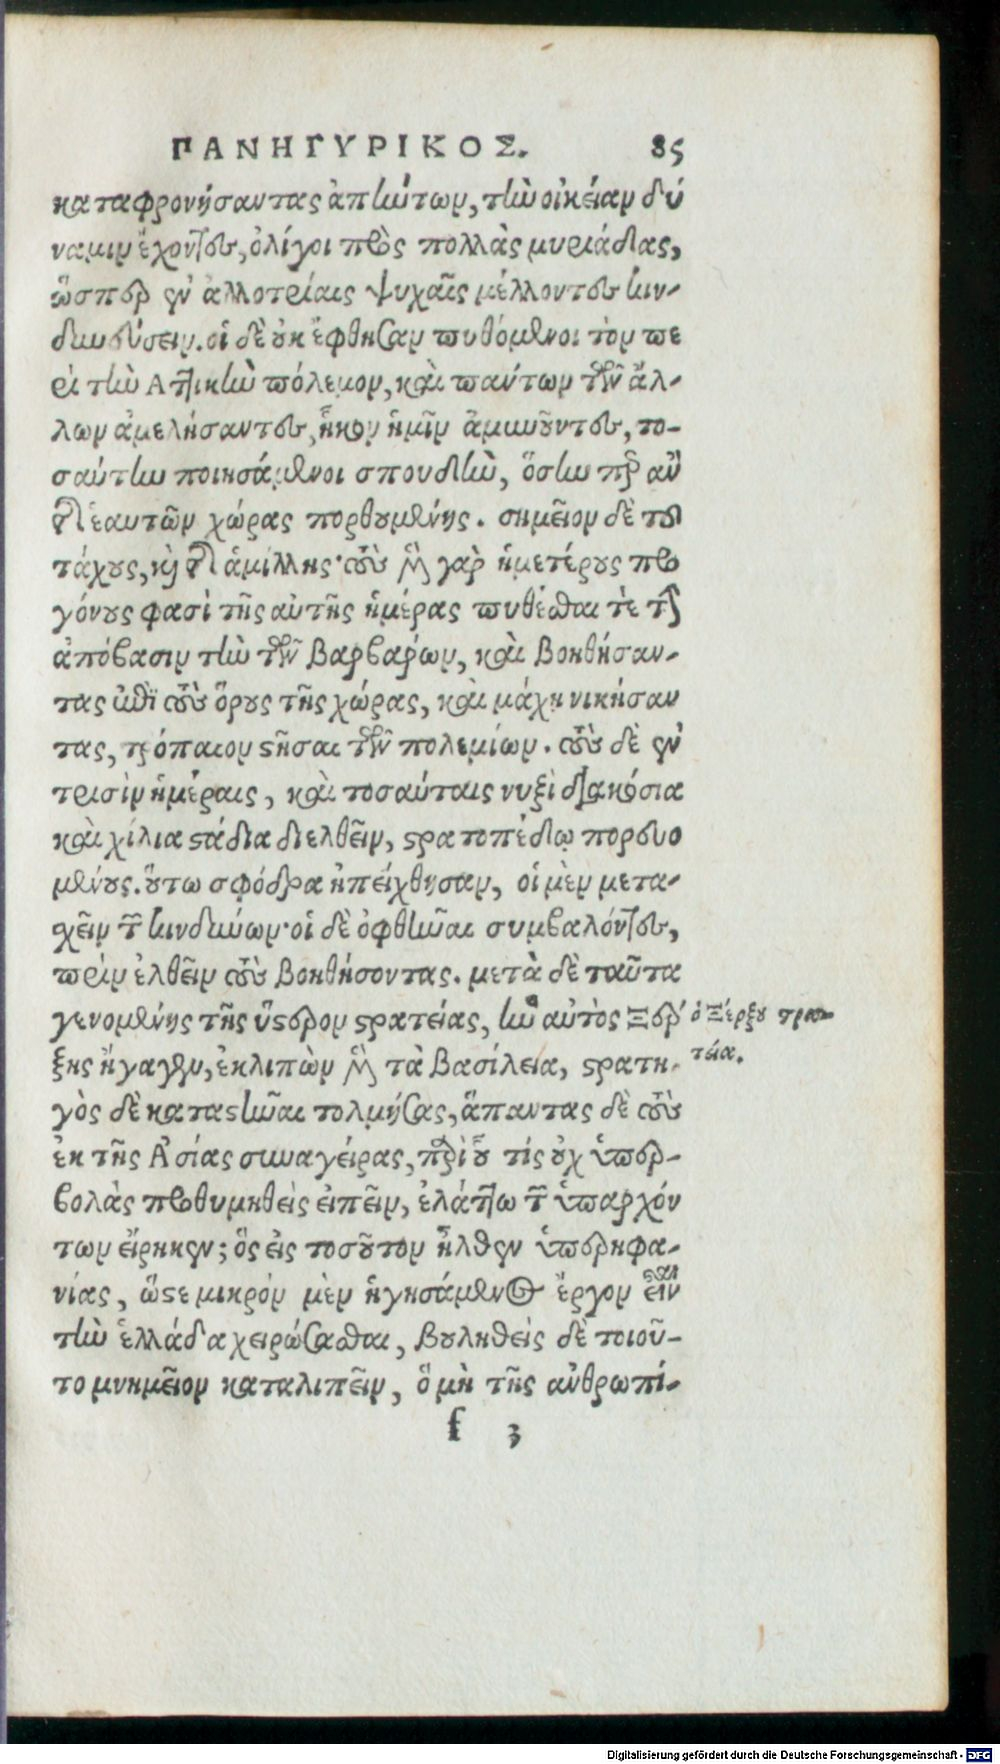 ΠΑΝΗΓΥΡΙΚΟΣ. 85
καταφρονήσαντας ἁπάντων, τὴν οἰκείαν δύ
ναμιν ἔχοντες, ὀλίγοι πρὸς πολλὰς μυριάδας,
ὥσπερ ἐν ἀλλοτρίαις ψυχαῖς μέλλοντες κιν-
δυνεύσειν. οἱ δὲ οὐκ ἔφθησαν πυθόμενοι τὸν πε
ρὶ τὴν Ἀττικὴν πόλεμον, καὶ πάντων τῶν ἄλ-
λων ἀμελήσαντες, ἧκον ἡμῖν ἀμυνοῦντες, το-
σαύτην ποιησάμενοι σπουδὴν, ὅσην περ ἂν
τῆς ἑαυτῶν χώρας πορθουμένης. σημεῖον δὲ τοῦ
τάχους, καὶ τῆς ἁμίλλης· τοὺς μὲν γὰρ ἡμετέρους προ
γόνους φασὶ τῆς αὐτῆς ἡμέρας πυθέσθαι τε τὴν
ἀπόβασιν τὴν τῶν βαρβάρων, καὶ βοηθήσαν-
τας ἐπὶ τοὺς ὅρους τῆς χώρας, καὶ μάχῃ νικήσαν
τας, τρόπαιον στῆσαι τῶν πολεμίων. τοὺς δὲ ἐν
τρισὶν ἡμέραις, καὶ τοσαύταις νυξὶ διακόσια
καὶ χίλια στάδια διελθεῖν, στρατοπέδῳ πορευο
μένους. οὕτω σφόδρα ἠπείχθησαν, οἱ μὲν μετα-
σχεῖν τῶν κινδύνων· οἱ δὲ ὀφθῆναι συμβαλόντες,
πρὶν ἐλθεῖν τοὺς βοηθήσοντας. μετὰ δὲ ταῦτα
γενομένης τῆς ὕστερον στρατείας, ἣν αὐτὸς Ξέρ
ξης ἤγαγεν, ἐκλιπὼν μὲν τὰ βασίλεια, στρατη-
γὸς δὲ καταστῆναι τολμήσας, ἅπαντας δὲ τοὺς
ἐκ τῆς Ἀσίας συναγείρας, περὶ οὗ τίς οὐχ ὑπερ-
βολὰς προθυμηθεὶς εἰπεῖν, ἐλάττω τῶν ὑπαρχόν
των εἴρηκεν; ὃς εἰς τοσοῦτον ἦλθεν ὑπερηφα-
νίας, ὥστε μικρὸν μὲν ἡγησάμενος ἔργον εἶναι
τὴν ἑλλάδα χειρώσασθαι, βουληθεὶς δὲ τοιοῦ-
το μνημεῖον καταλιπεῖν, ὃ μὴ τῆς ἀνθρωπί-
f 3
ὁ Ξέρξου στρα-
τεία.
Digitalisierung gefördert durch die Deutsche Forschungsgemeinschaft - DFG